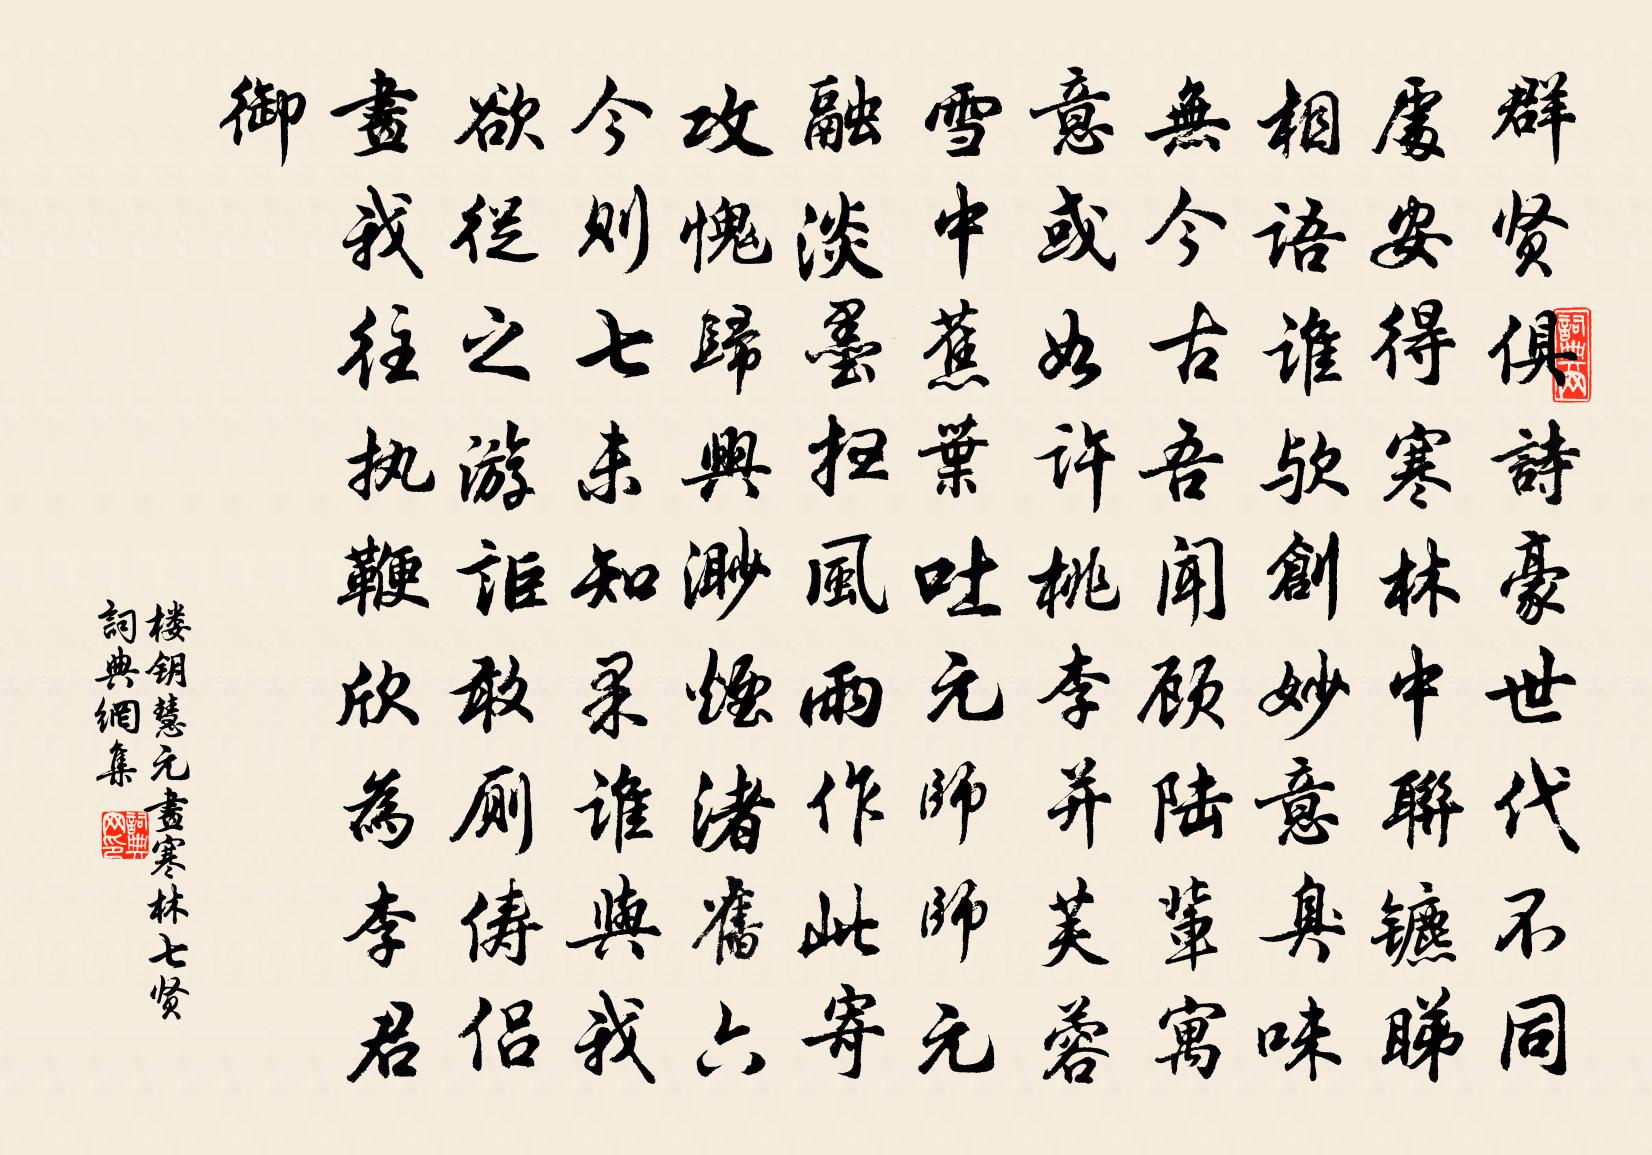 群贤俱詩豪世代不同
處安得寒林中聯镳睇
相語谁欤創妙意臭味
無今古吾闻顾陆辈寓
意或如许桃李并芙蓉
雪中蕉葉吐元師師元
融淡墨扫風雨作此寄
攻愧歸興渺煙渚舊六
今则七未知果谁與我
欲從之游詎敢厕俦侣
畫我往执鞭欣為李君
御
楼钥慧元畫寒林七贤
詞典網集